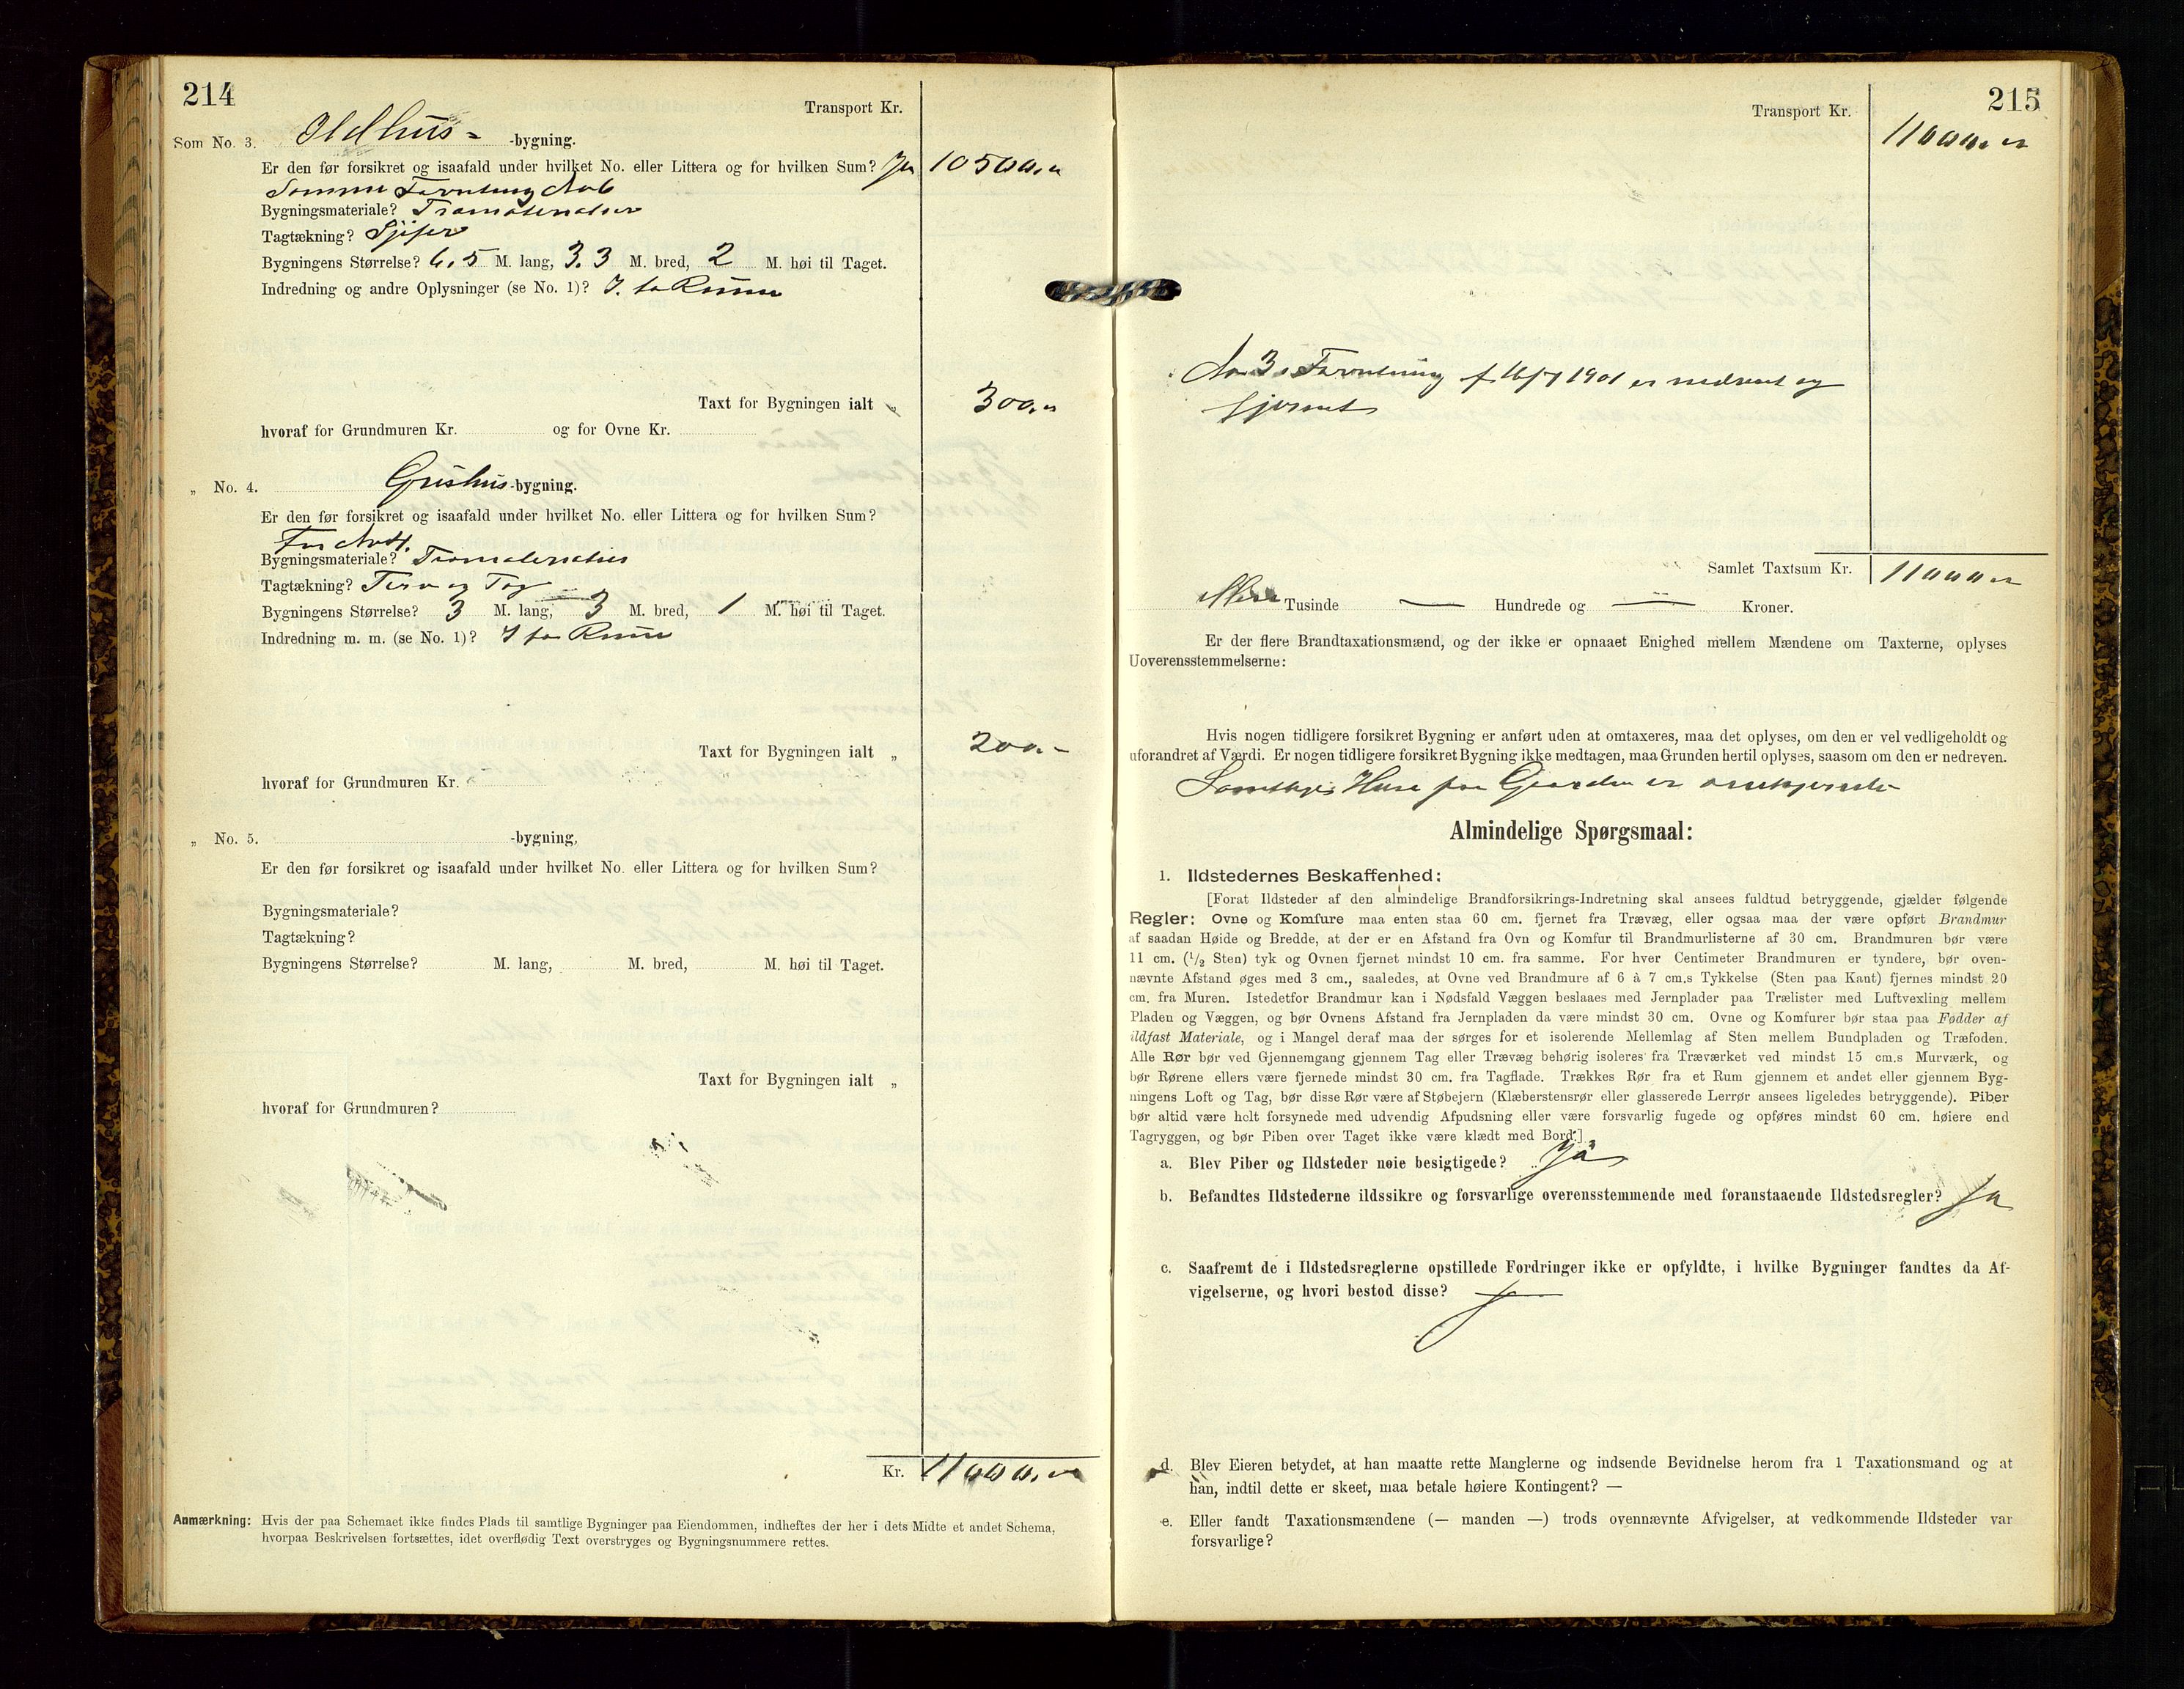 214
Transport Kr.
Som No. 3. Ildhus- -bygning.
Er den før forsikret og isaafald under hvilket No. eller Littera og for hvilken Sum? Ja 10500.
Samme Forretning No 6
Bygningsmateriale? Træmaterialier
Tagtækning? Skifer
Bygningens Størrelse? 6,5 M. lang, 3.3 M. bred, 2 M. høi til Taget.
Indredning og andre Oplysninger (se No. 1)? I. to Rumm
Taxt for Bygningen ialt „ 300.
hvoraf for Grundmuren Kr. og for Ovne Kr.
„ No. 4. Grishus-bygning.
Er den før forsikret og isaafald under hvilket No. eller Littera og for hvilken Sum?
Bygningsmateriale? Træmaterialier
Tagtækning? Torv og
Bygningens Størrelse? 3 M. lang, 3 M. bred, 1 M. høi til Taget.
Indredning m. m. (se No. 1)? I to Rum
Taxt for Bygningen ialt „ 200.-
hvoraf for Grundmuren Kr.
„ No. 5. -bygning,
Er den før forsikret og isaafald under hvilket No. eller Littera og for hvilken Sum?
Bygningsmateriale?
Tagtækning?
Bygningens Størrelse? M. lang, M. bred, M. høi til Taget.
Taxt for Bygningen ialt „
hvoraf for Grundmuren?
Kr. 11000.
Anmærkning: Hvis der paa Schemaet ikke findes Plads til samtlige Bygninger paa Eiendommen, indheftes der her i dets Midte et andet Schema,
hvorpaa Beskrivelsen fortsættes, idet overflødig Text overstryges og Bygningsnummere rettes.
215
Transport Kr. 11000.
No 3 i Forretning af 16/7 1901 er nedrevet og
fjernet
Samlet Taxtsum Kr. 11000
Tusinde — Hundrede og — Kroner.
Er der flere Brandtaxationsmænd, og der ikke er opnaaet Enighed mellem Mændene om Taxterne, oplyses
Uoverensstemmelserne:
Hvis nogen tidligere forsikret Bygning er anført uden at omtaxeres, maa det oplyses, om den er vel vedligeholdt og
uforandret af Værdi. Er nogen tidligere forsikret Bygning ikke medtagen, maa Grunden hertil oplyses, saasom om den er nedreven.
Samtlige Huse paa Gaarden er
Almindelige Spørgsmaal:
1. Ildstedernes Beskaffenhed:
[Forat Ildsteder af den almindelige Brandforsikrings-Indretning skal ansees fuldtud betryggende, gjælder følgende
Regler: Ovne og Komfure maa enten staa 60 cm. fjernet fra Trævæg, eller ogsaa maa der være opført Brandmur
af saadan Høide og Bredde, at der er en Afstand fra Ovn og Komfur til Brandmurlisterne af 30 cm. Brandmuren bør være
11 cm. (½ Sten) tyk og Ovnen fjernet mindst 10 cm. fra samme. For hver Centimeter Brandmuren er tyndere, bør oven-
nævnte Afstand øges med 3 cm., saaledes, at Ovne ved Brandmure af 6 à 7 cm.s Tykkelse (Sten paa Kant) fjernes mindst 20
cm. fra Muren. Istedetfor Brandmur kan i Nødsfald Væggen beslaaes med Jernplader paa Trælister med Luftvexling mellem
Pladen og Væggen, og bør Ovnens Afstand fra Jernpladen da være mindst 30 cm. Ovne og Komfurer bør staa paa Fødder af
ildfast Materiale, og i Mangel deraf maa der sørges for et isolerende Mellemlag af Sten mellem Bundpladen og Træfoden.
Alle Rør bør ved Gjennemgang gjennem Tag eller Trævæg behørig isoleres fra Træværket ved mindst 15 cm.s Murværk, og
bør Rørene ellers være fjernede mindst 30 cm. fra Tagflade. Trækkes Rør fra et Rum gjennem et andet eller gjennem Byg-
ningens Loft og Tag, bør disse Rør være af Støbejern (Klæberstensrør eller glasserede Lerrør ansees ligeledes betryggende). Piber
bør altid være helt forsynede med udvendig Afpudsning eller være forsvarlig fugede og opføres mindst 60 cm. høiere end
Tagryggen, og bør Piben over Taget ikke være klædt med Bord.]
a. Blev Piber og Ildsteder nøie besigtigede? Ja
b. Befandtes Ildstederne ildssikre og forsvarlige overensstemmende med foranstaaende Ildstedsregler? Ja
c. Saafremt de i Ildstedsreglerne opstillede Fordringer ikke er opfyldte, i hvilke Bygninger fandtes da Af-
vigelserne, og hvori bestod disse?
d. Blev Eieren betydet, at han maatte rette Manglerne og indsende Bevidnelse herom fra 1 Taxationsmand og at
han, indtil dette er skeet, maa betale høiere Kontingent? —
e. Eller fandt Taxationsmændene (— manden —) trods ovennævnte Afvigelser, at vedkommende Ildsteder var
forsvarlige?